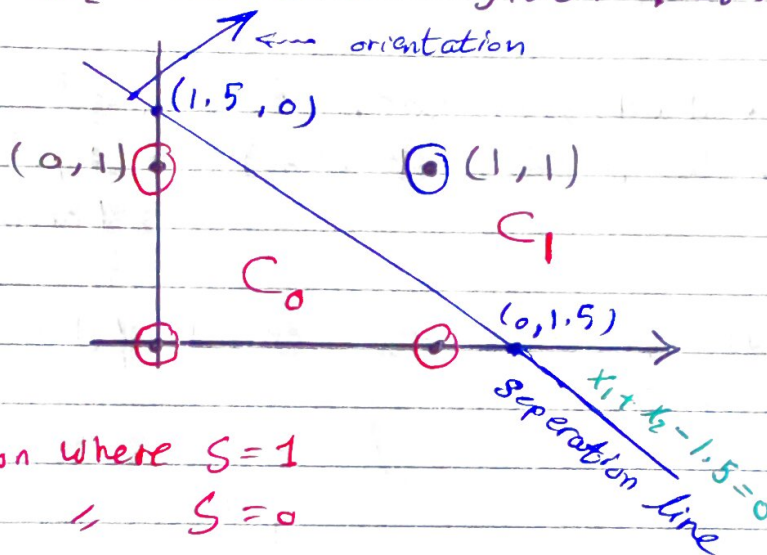 ← orientation
(1.5, 0)
(0, 1)
(1, 1)
C1
C0
(0, 1.5)
x1 + x2 - 1.5 = 0
seperation line
on where S = 1
〃 S = 0